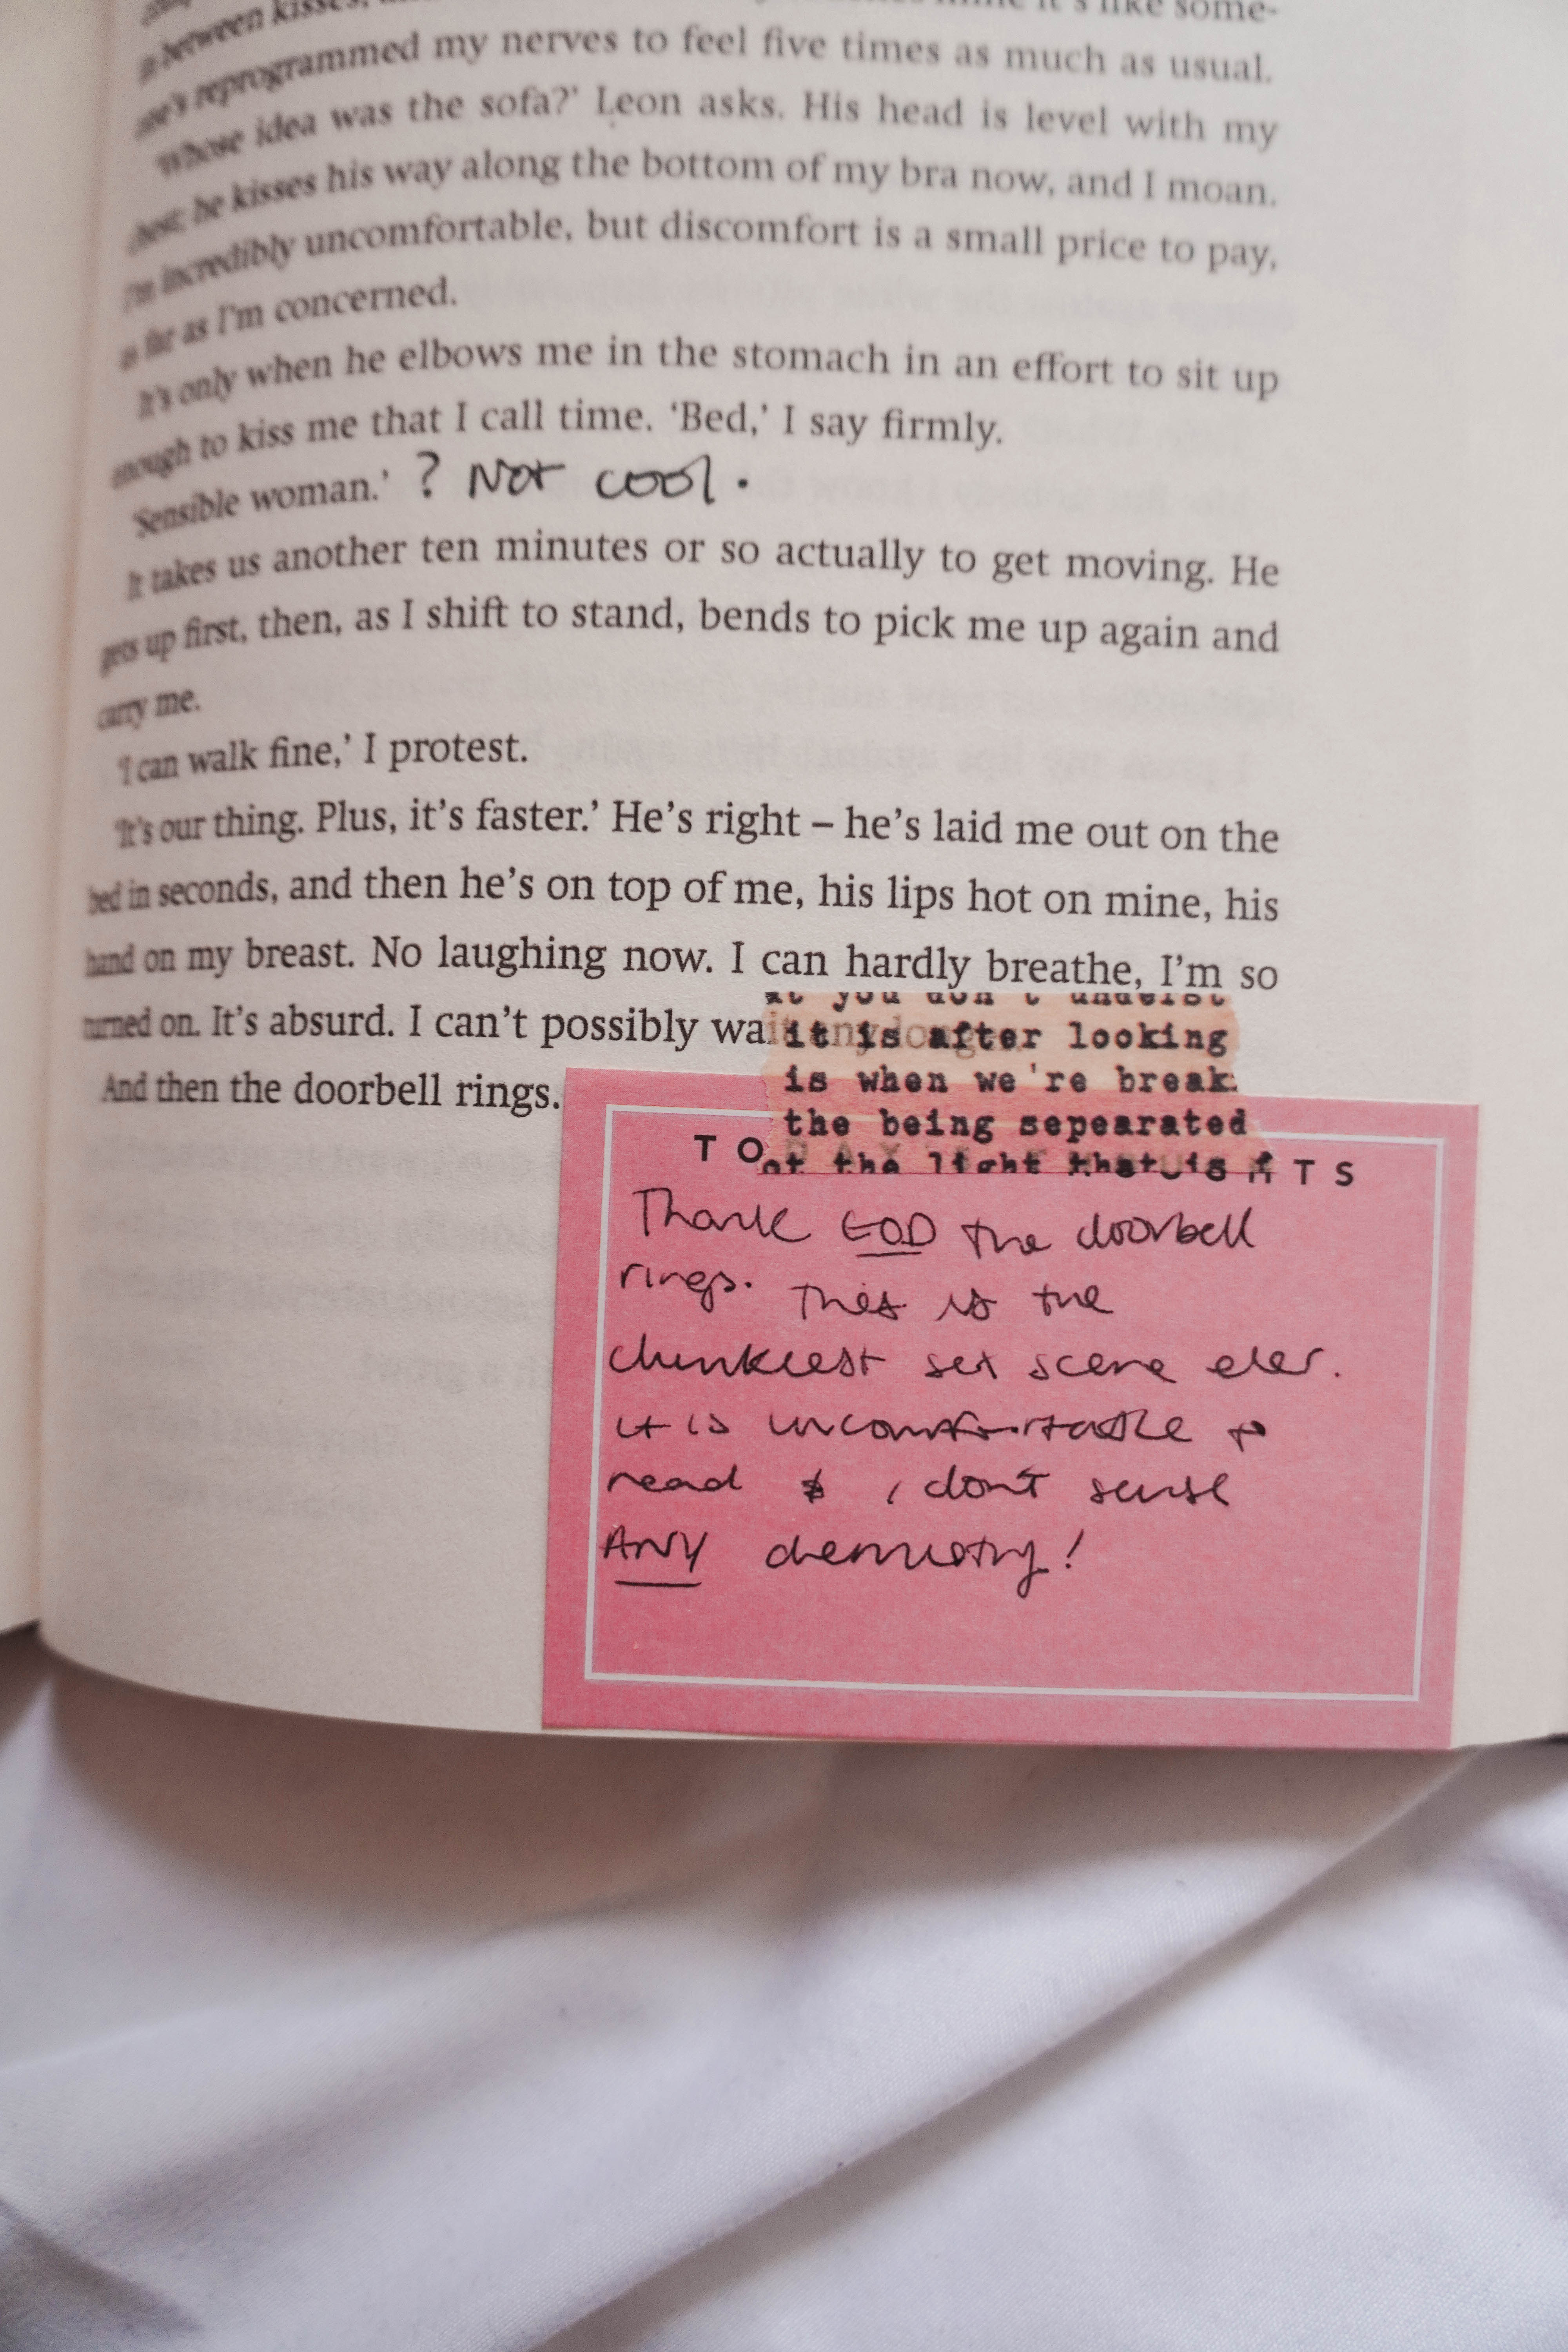 in between kisses,
one's reprogrammed my nerves to feel five times as much as usual.
'Whose idea was the sofa?' Leon asks. His head is level with my
chest; he kisses his way along the bottom of my bra now, and I moan.
I'm incredibly uncomfortable, but discomfort is a small price to pay,
as far as I'm concerned.
It's only when he elbows me in the stomach in an effort to sit up
enough to kiss me that I call time. 'Bed,' I say firmly.
'Sensible woman.' ? Not cool.
It takes us another ten minutes or so actually to get moving. He
gets up first, then, as I shift to stand, bends to pick me up again and
carry me.
'I can walk fine,' I protest.
'It's our thing. Plus, it's faster.' He's right – he's laid me out on the
bed in seconds, and then he's on top of me, his lips hot on mine, his
hand on my breast. No laughing now. I can hardly breathe, I'm so
turned on. It's absurd. I can't possibly wait any longer.
And then the doorbell rings.
it is after looking
is when we're break
the being sepearated
of the light that is
Thank GOD the doorbell
rings. This is the
chunkiest sex scene ever.
it is uncomfortable to
read & i don't sense
ANY chemistry!